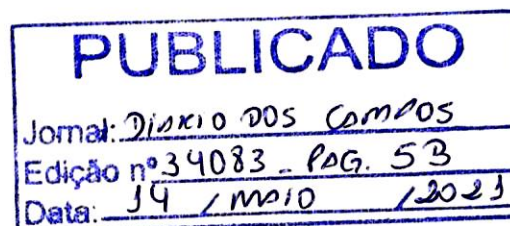 PUBLICADO
Jornal: DIARIO DOS CAMPOS
Edição nº 34083 - PAG. 5B
Data: 14 / MAIO / 2021